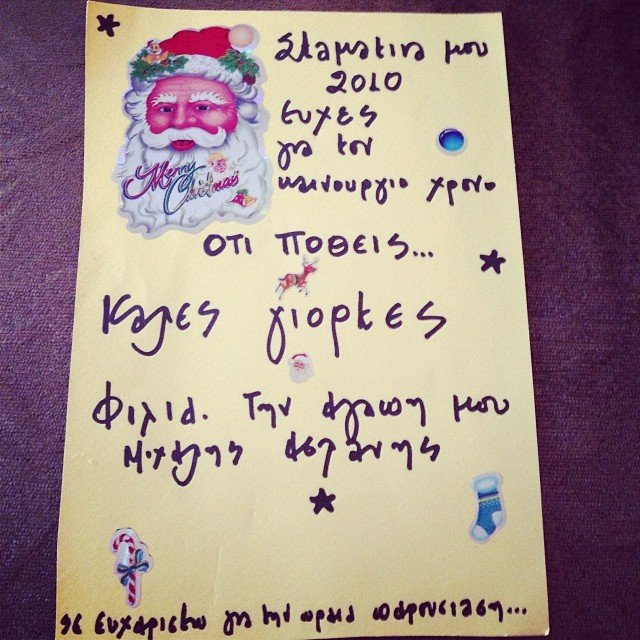 Σταματινα μου
2010
Ευχες
για τον
καινουργιο χρονο
Merry
Christmas
ΟΤΙ ΠΟΘΕΙΣ...
Καλες γιορτες
Φιλια. Την αγαπη μου
Μιχαλης Ασλανης
σε ευχαριστω για την ωραια παρουσιαση...